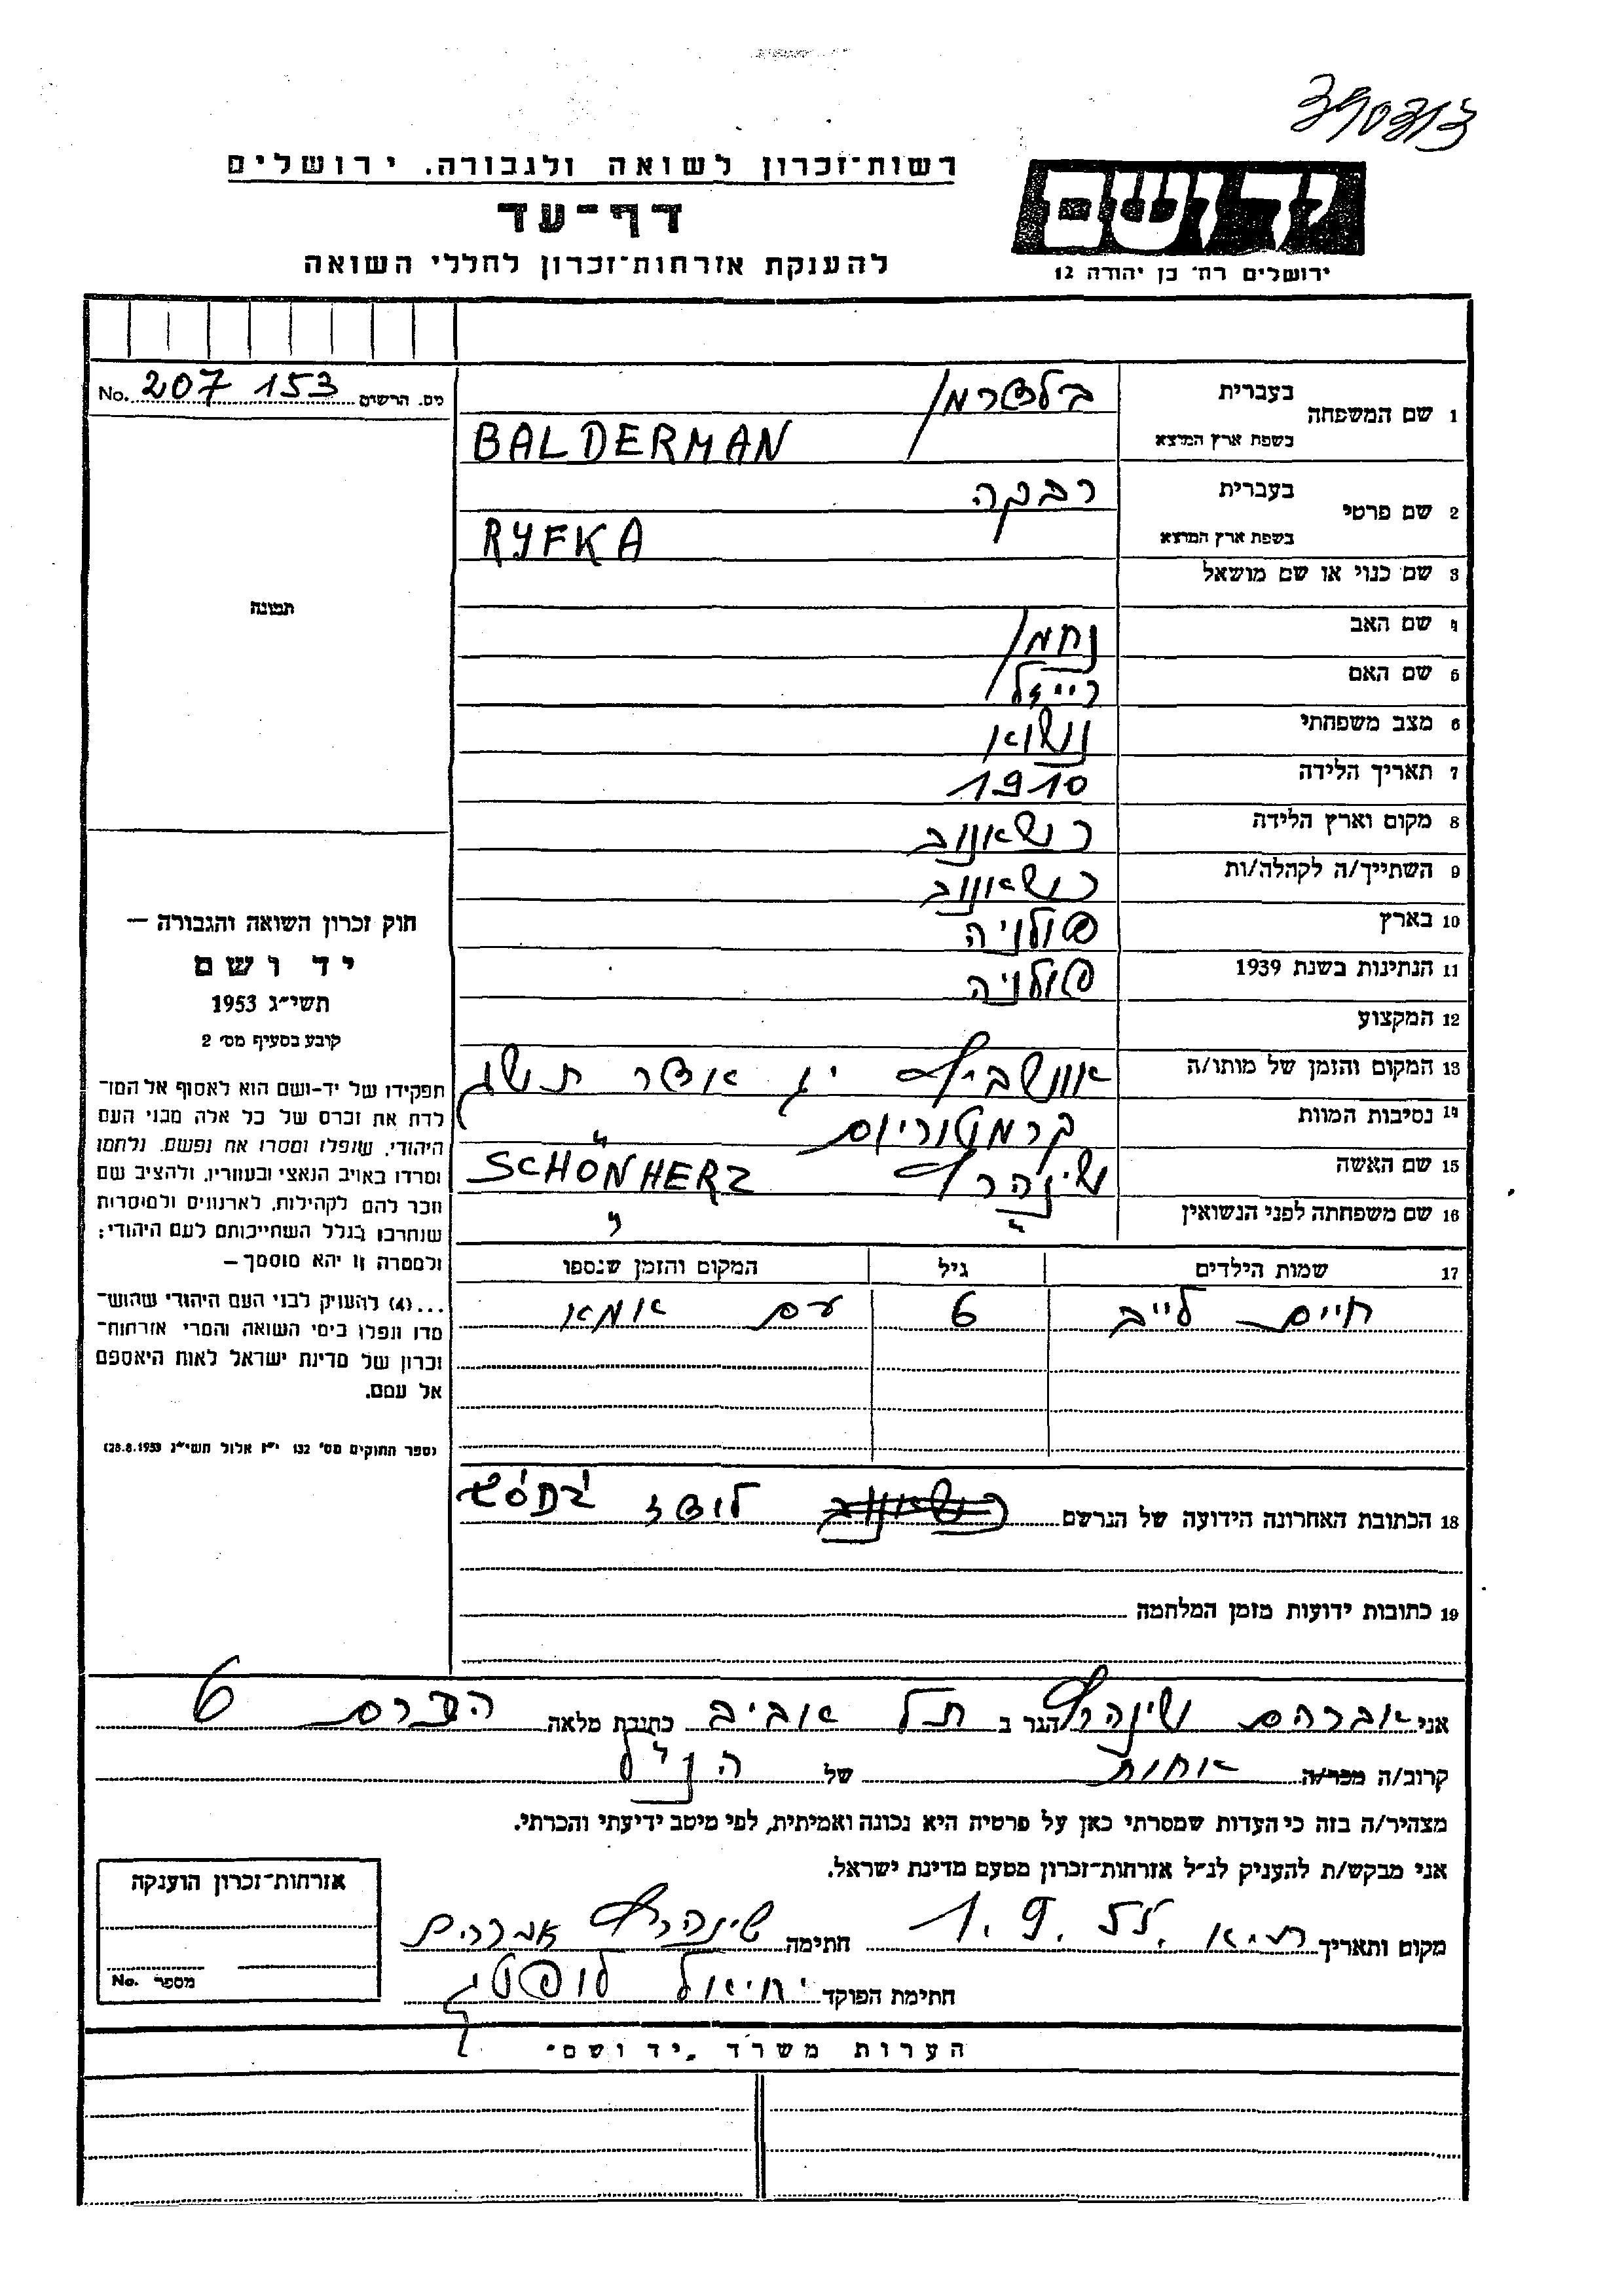 390313
יד ושם
ירושלים רח׳ בן יהודה 12
רשות־זכרון לשואה ולגבורה. ירושלים
דף־עד
להענקת אזרחות־זכרון לחללי השואה
No. 207 153 מס. הרשום
תמונה
1 שם המשפחה בעברית בלדרמן
בשפת ארץ המוצא BALDERMAN
2 שם פרטי בעברית רבקה
בשפת ארץ המוצא RYFKA
3 שם כנוי או שם מושאל
4 שם האב נחמן
5 שם האם רייזל
6 מצב משפחתי נשואה
7 תאריך הלידה 1910
8 מקום וארץ הלידה כשאנוב
9 השתייך/ה לקהלה/ות כשאנוב
10 בארץ פולניה
11 הנתינות בשנת 1939 פולניה
12 המקצוע
13 המקום והזמן של מותו/ה אושביץ יג אדר תשג
14 נסיבות המוות קרמטוריום
15 שם האשה שינהרץ SCHÖNHERZ
16 שם משפחתה לפני הנשואין " "
17 שמות הילדים גיל המקום והזמן שנספו
חיים לייב 6 עם אמא
18 הכתובת האחרונה הידועה של הנרשם לודז
19 כתובות ידועות מזמן המלחמה
חוק זכרון השואה והגבורה —
יד ושם
תשי״ג 1953
קובע בסעיף מס׳ 2
תפקידו של יד-ושם הוא לאסוף אל המו־
לדת את זכרם של כל אלה מבני העם
היהודי, שנפלו ומסרו את נפשם. נלחמו
ומרדו באויב הנאצי ובעוזריו, ולהציב שם
וזכר להם לקהילות, לארגונים ולמוסדות
שנחרבו בגלל השתייכותם לעם היהודי;
ולמטרה זו יהא מוסמך —
...(4) להעניק לבני העם היהודי שהוש־
מדו ונפלו בימי השואה והמרי אזרחות־
זכרון של מדינת ישראל לאות היאספם
אל עמם.
(ספר החוקים מס׳ 132 י״ז אלול תשי״ג 28.8.1953)
אני אברהם שינהרץ הגר ב תל אביב כתובת מלאה הדרם 6
קרוב/ה מכר/ה אחות של הנ״ל
מצהיר/ה בזה כי העדות שמסרתי כאן על פרטיה היא נכונה ואמיתית, לפי מיטב ידיעתי והכרתי.
אני מבקש/ת להעניק לנ״ל אזרחות־זכרון מטעם מדינת ישראל.
מקום ותאריך ת״א 1.9.55 חתימה שינהרץ אברהם
חתימת הפוקד יחיאל
אזרחות־זכרון הוענקה
No. מספר
הערות משרד „יד ושם"